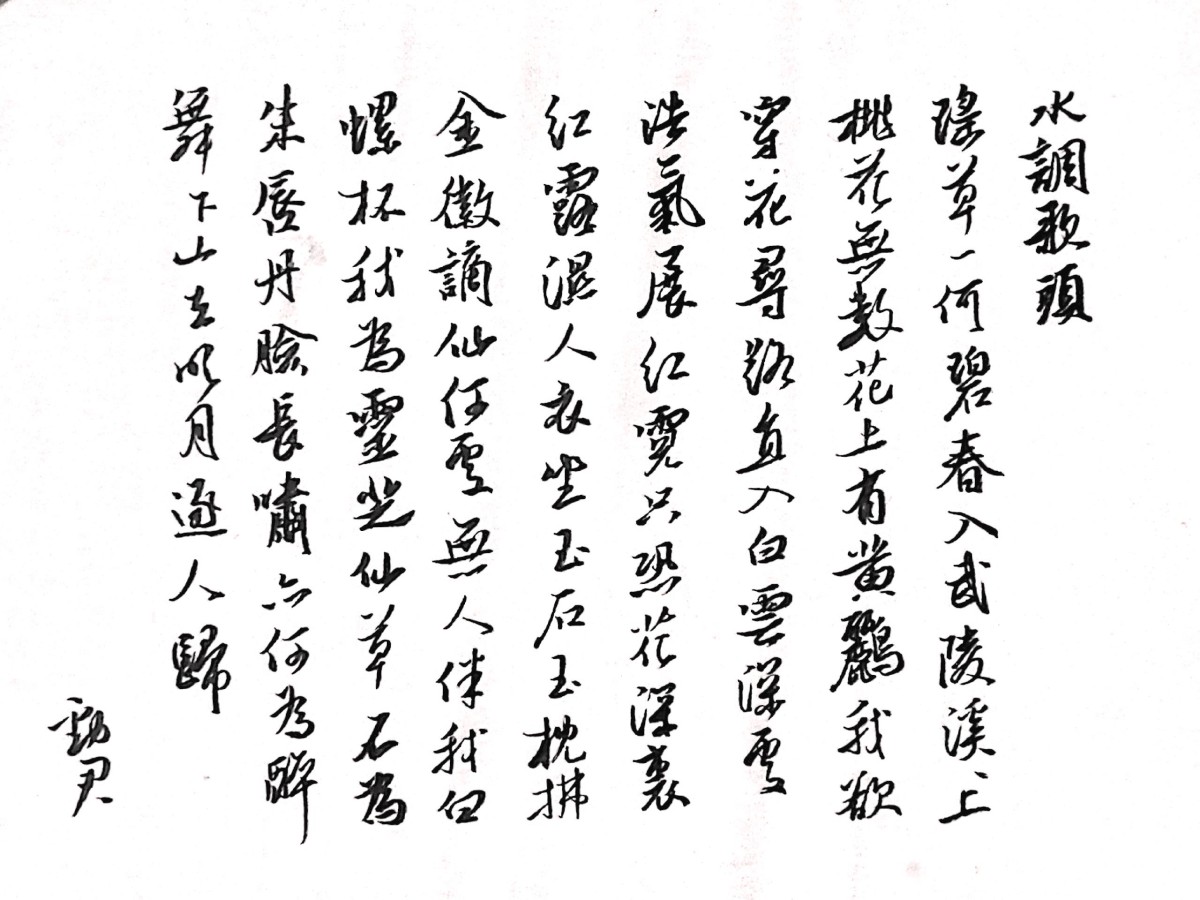 水調歌頭
瑤草一何碧春入武陵溪〻上
桃花無數花上有黄鸝我欲
穿花尋路直入白雲深處
浩氣展紅霓只恐花深裏
紅露濕人衣坐玉石玉枕拂
金徽謫仙何處無人伴我白
螺杯我為靈芝仙草不為
朱唇丹臉長嘯亦何為醉
舞下山去明月逐人歸
勁君